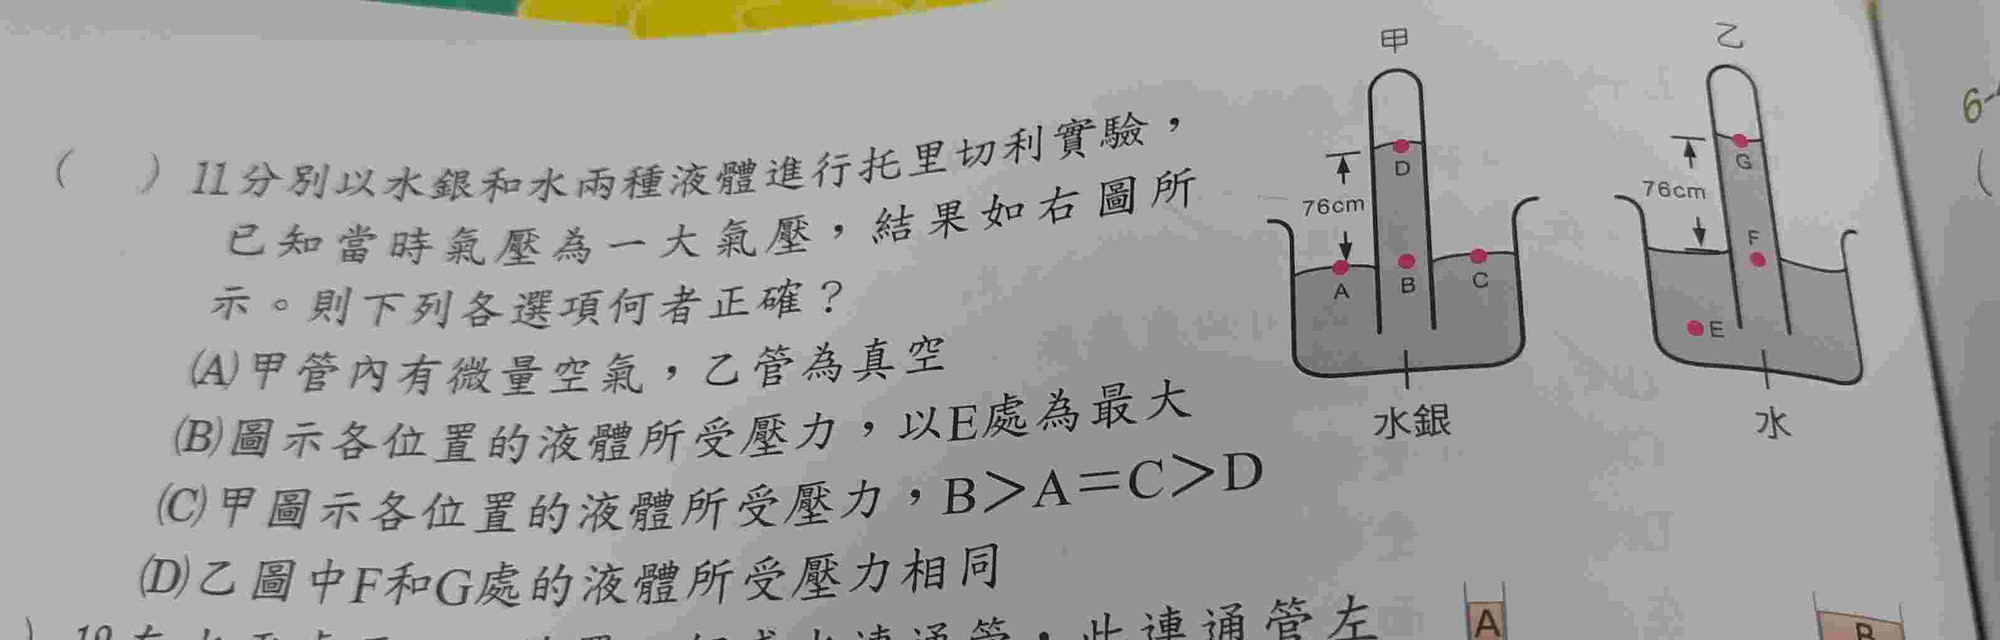 ( ) 11分別以水銀和水兩種液體進行托里切利實驗，
已知當時氣壓為一大氣壓，結果如右圖所
示。則下列各選項何者正確？
(A)甲管內有微量空氣，乙管為真空
(B)圖示各位置的液體所受壓力，以E處為最大
(C)甲圖示各位置的液體所受壓力，B＞A＝C＞D
(D)乙圖中F和G處的液體所受壓力相同
甲
D
76cm
A
B
C
水銀
乙
G
76cm
F
E
水
連通管，此連通管左
A
B
6-
(